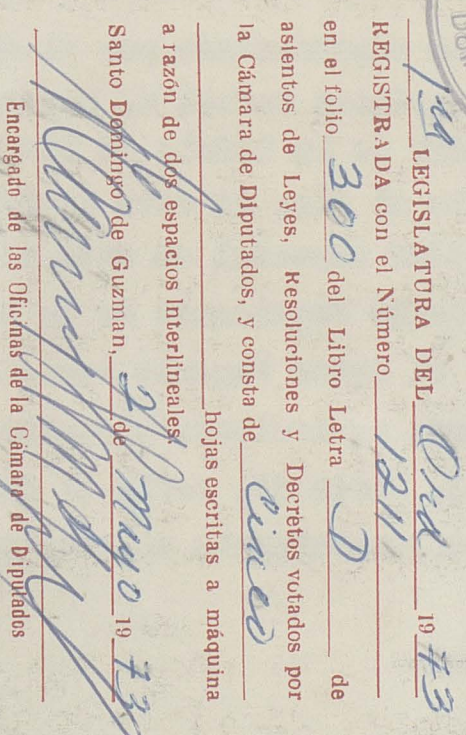 1ra LEGISLATURA DEL Ord. 1973
REGISTRADA con el Número 1211
en el folio 300 del Libro Letra D de
asientos de Leyes, Resoluciones y Decretos votados por
la Cámara de Diputados, y consta de Cinco
hojas escritas a máquina
a razón de dos espacios Interlineales.
Santo Domingo de Guzman, 2 de Mayo 1973
Encargado de las Oficinas de la Cámara de Diputados